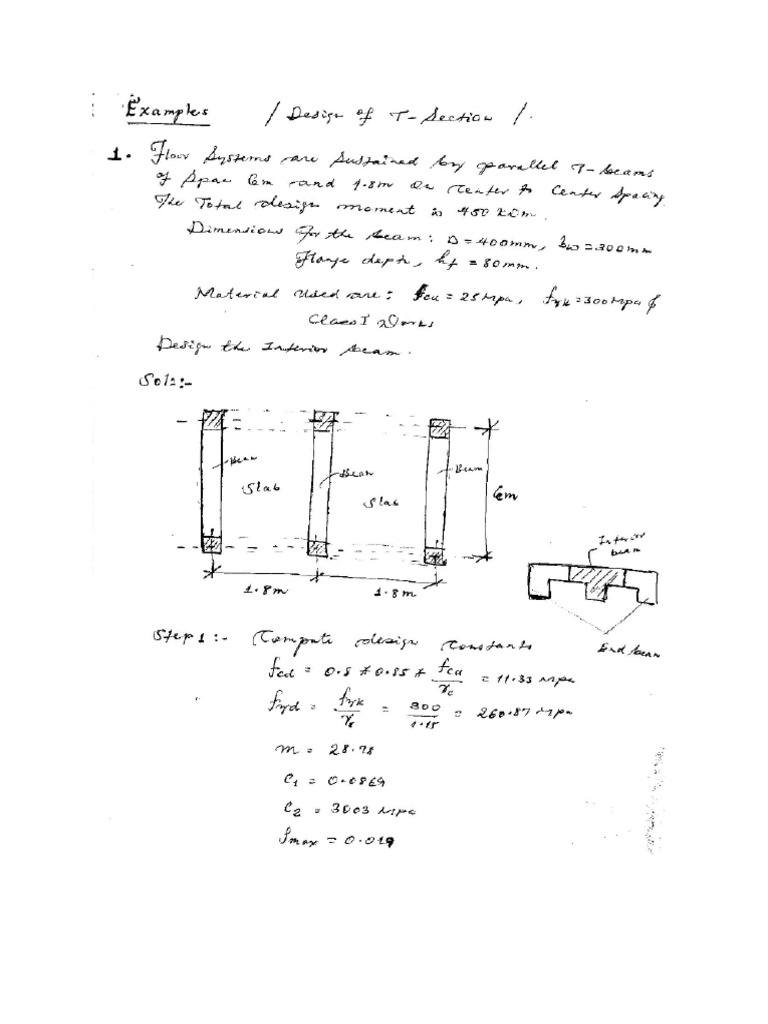 Examples / Design of T-Section /.
1. Floor Systems are Sustained by parallel T-beams
of Span 6m and 1.8m on Center to Center Spacing.
The Total design moment is 450 KNm.
Dimensions for the beam: D = 400mm, bw = 300mm
Flange depth, hf = 80mm.
Material Used are: fcu = 25 Mpa, fyk = 300 Mpa &
Class I Works
Design the Interior beam.
Sol:-
Beam
Beam
Beam
Slab
Slab
6m
1.8m
1.8m
Interior
beam
End beam
Step 1:- Compute design Constants
fcd = 0.8 * 0.85 * fcu/γc = 11.33 Mpa
fyd = fyk/γs = 300/1.15 = 260.87 Mpa
m = 28.78
C1 = 0.0869
C2 = 3003 Mpa
ρmax = 0.019